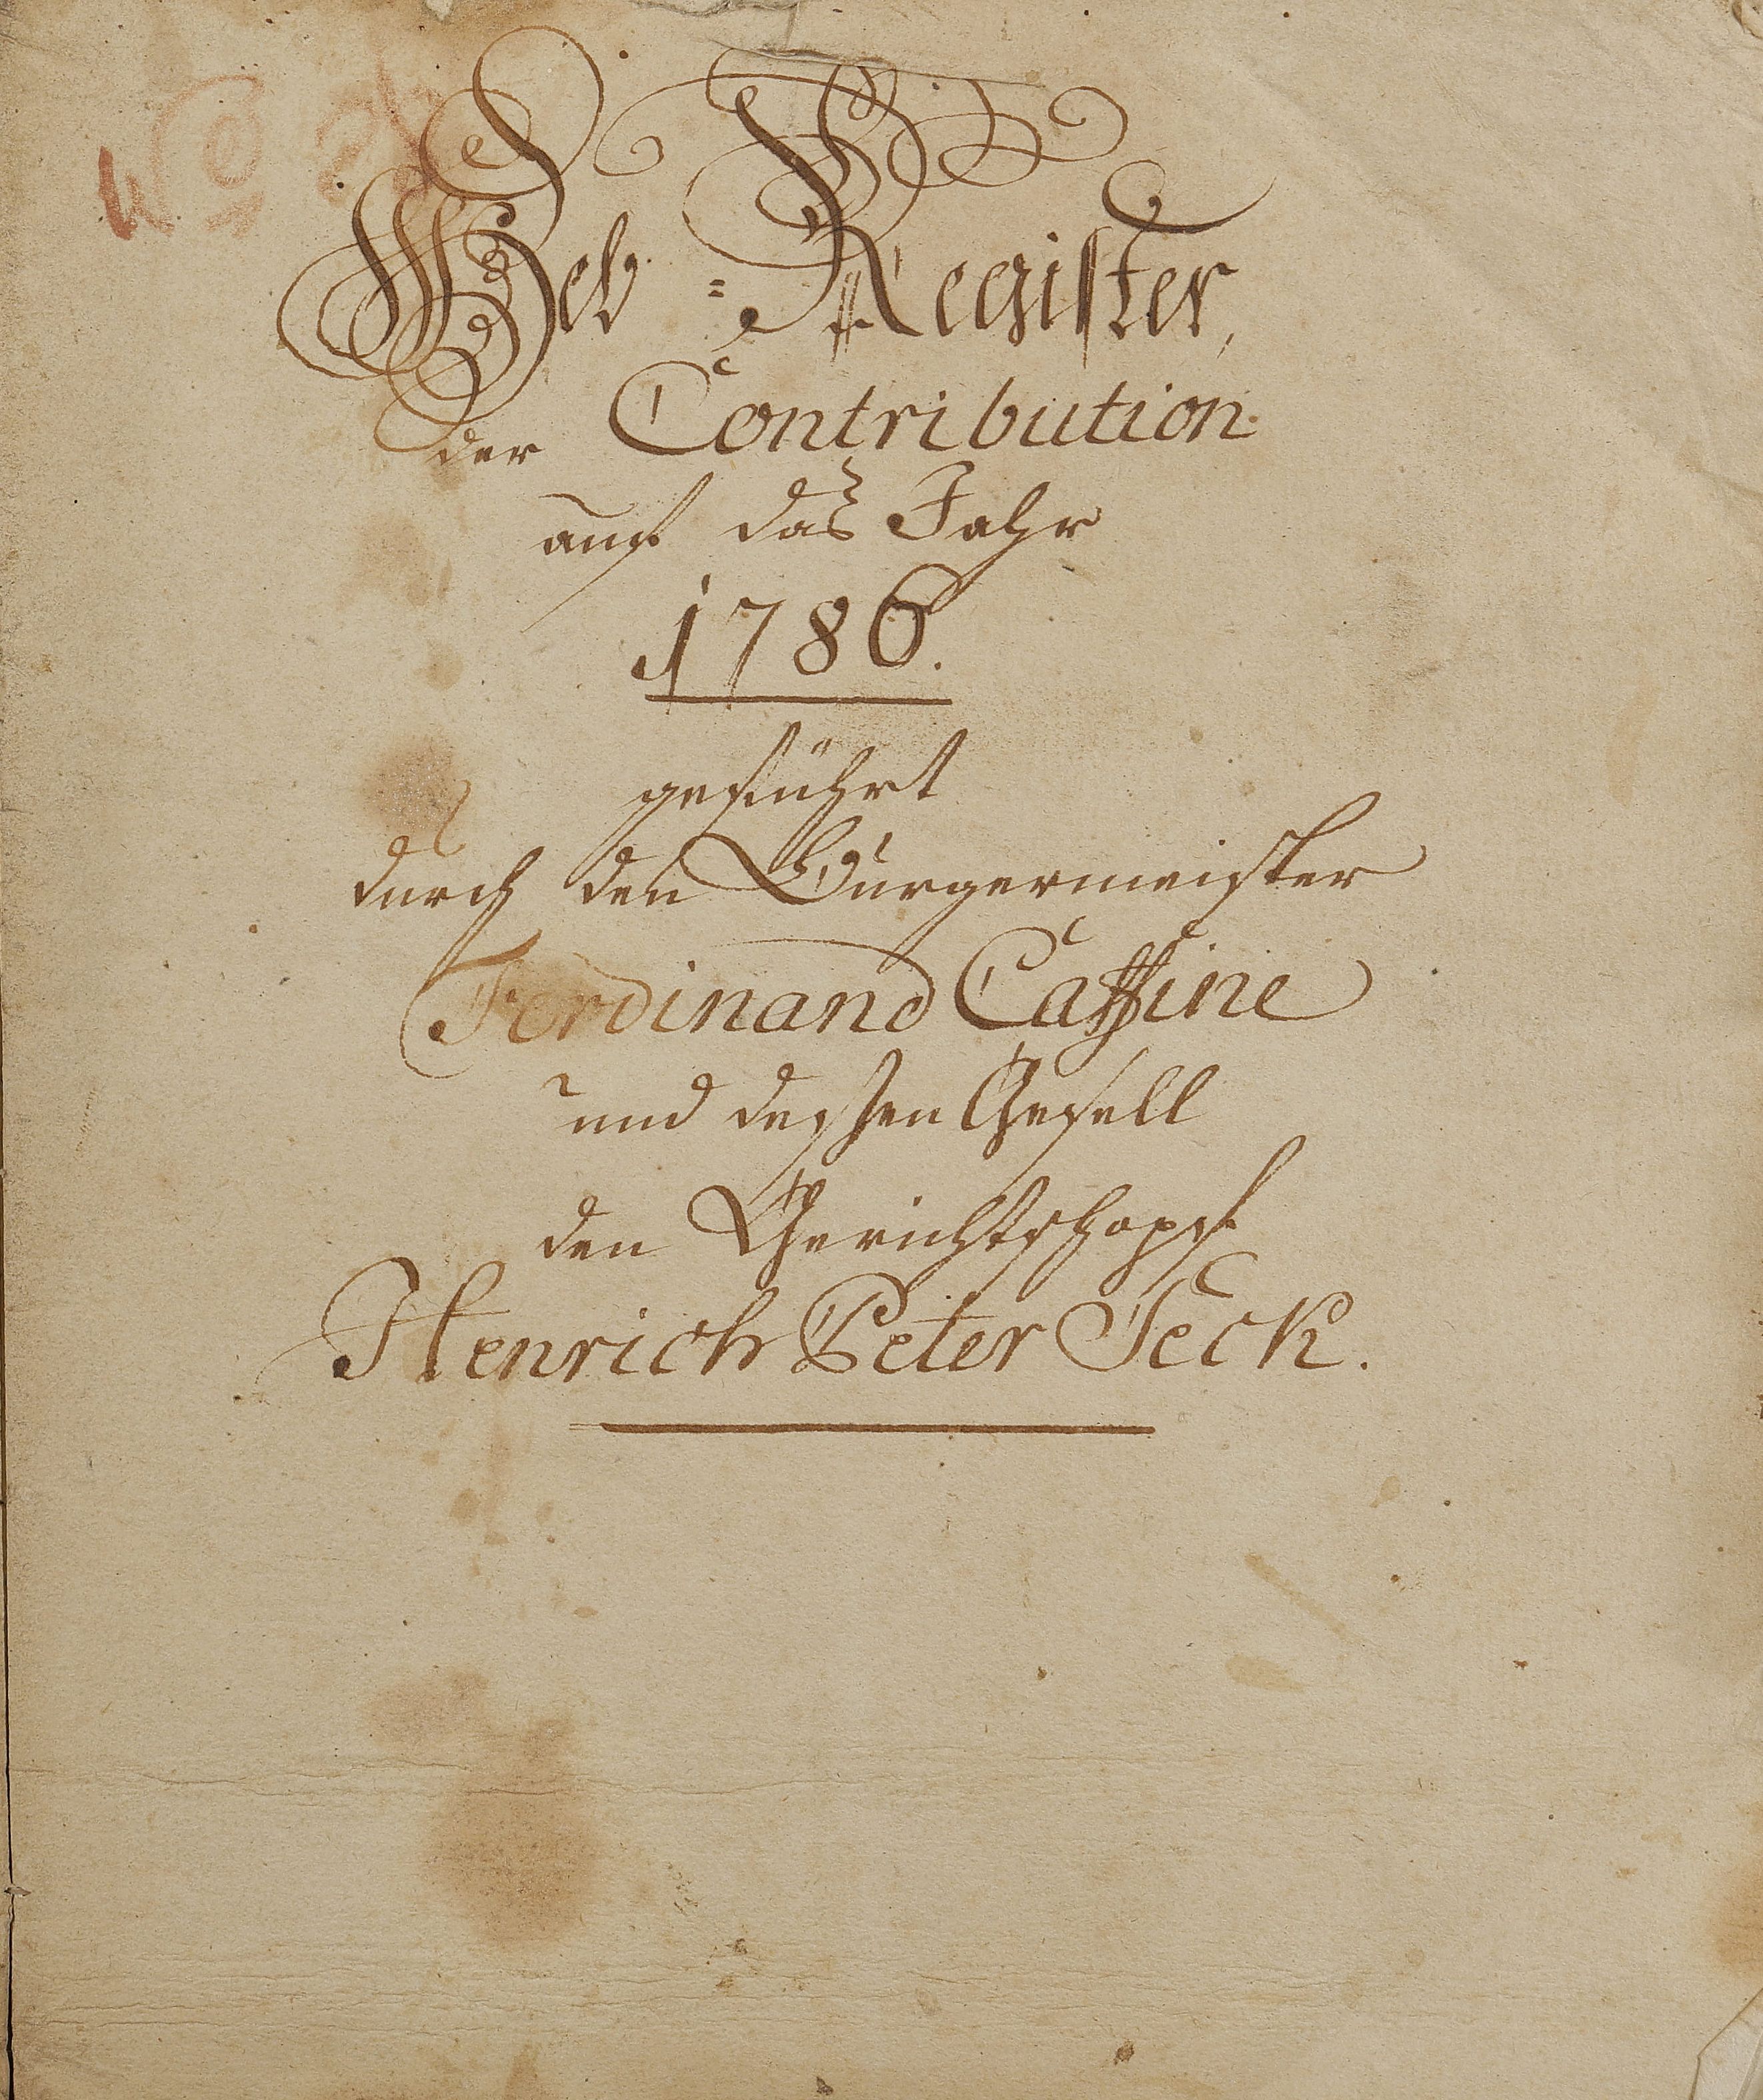 Heb=Register,
der Contribution
auf das Jahr
1786.
geführt
durch den Burgermeister
Ferdinand Cassine
und dessen Gesell
den Gerichtschöpf
Henrich Peter Jeck.